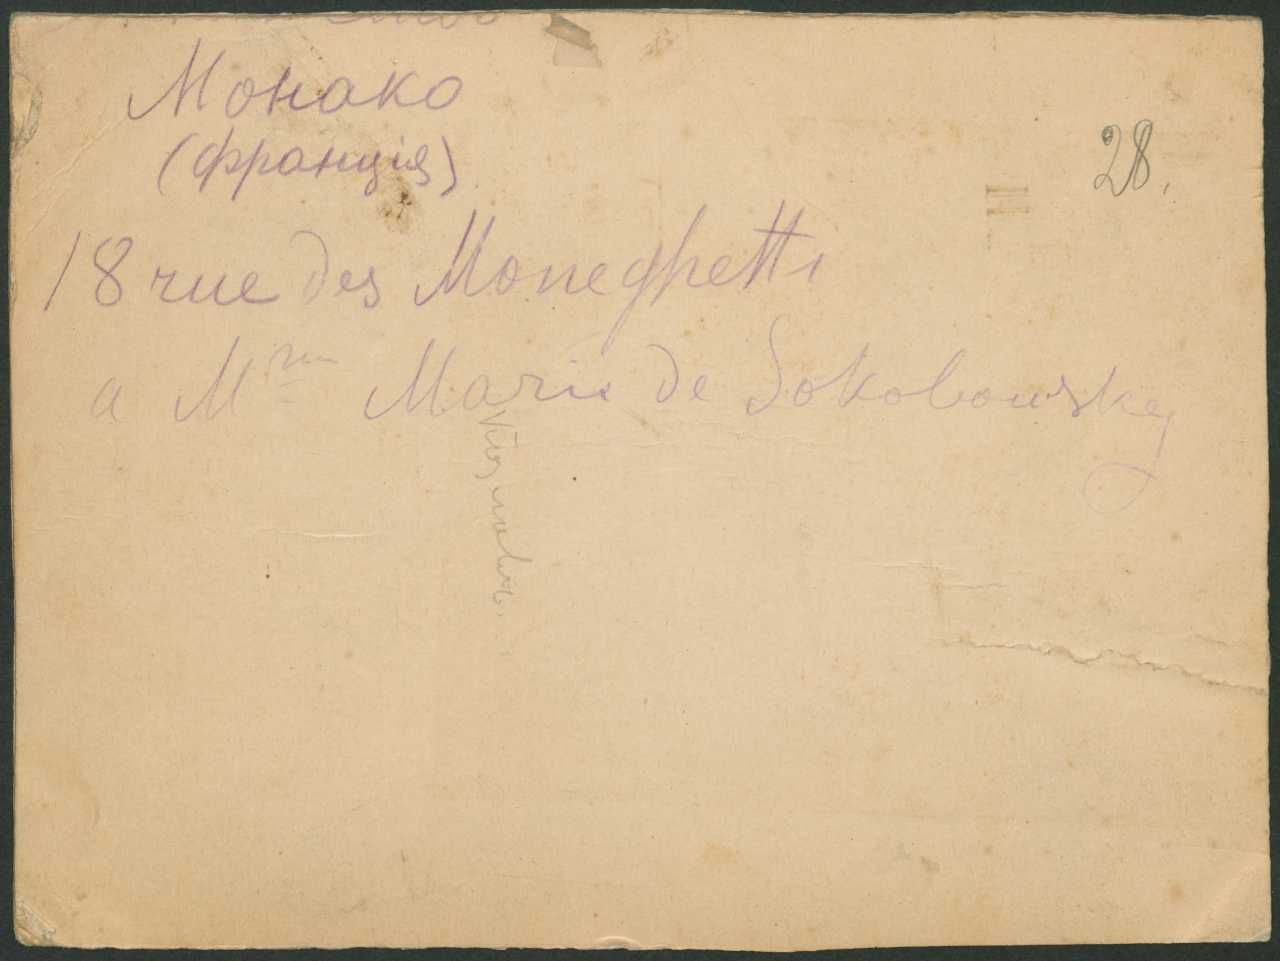 Монако
(франція)
28.
18 rue des Moneghetti
a Mme Marie de Sokolowsky